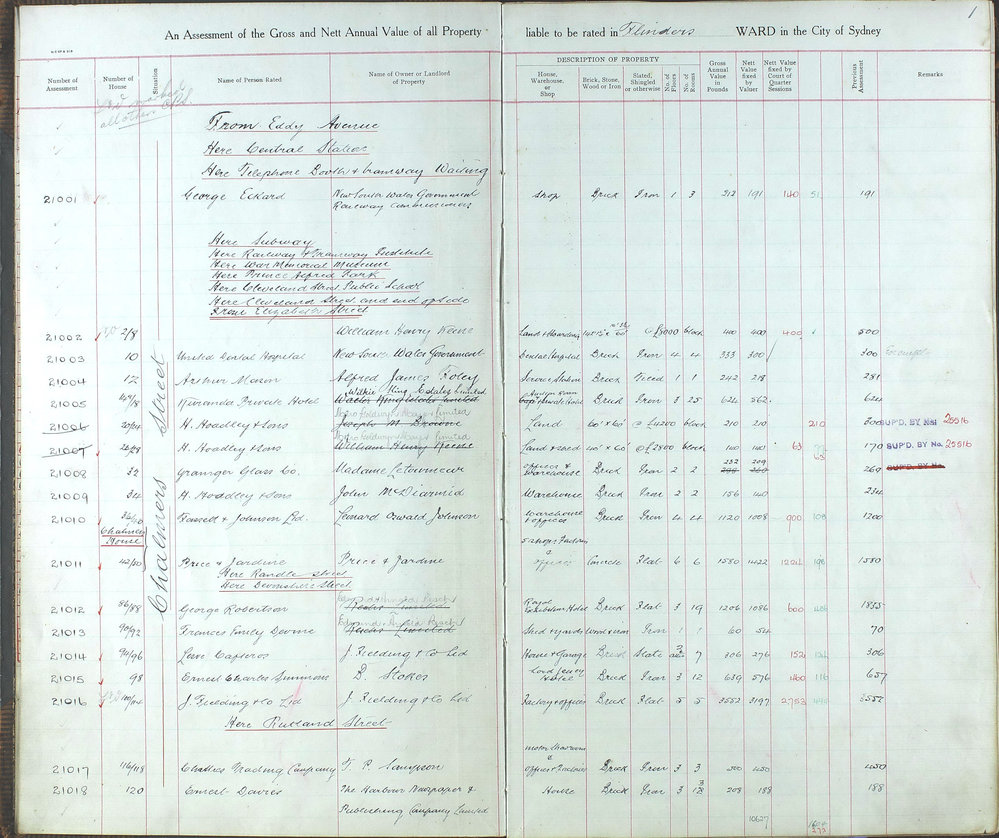 1
An Assessment of the Gross and Nett Annual Value of all Property liable to be rated in Flinders WARD in the City of Sydney
DESCRIPTION OF PROPERTY
Number of Assessment Number of House Situation Name of Person Rated Name of Owner or Landlord of Property House, Warehouse or Shop Brick, Stone, Wood or Iron Slated, Shingled or otherwise No. of Floors No. of Rooms Gross Annual Value in Pounds Nett Value fixed by Valuer Nett Value fixed by Court of Quarter Sessions Previous Assessment Remarks
Chalmers Street
From Eddy Avenue
Here Central Station
Here Telephone Booths & tramway Waiting
21001 George Eckard New South Wales Government Railway Commissioners Shop Brick Iron 1 3 212 191 140 51 191
Here Subway
Here Railway & Tramway Institute
Here War Memorial Museum
Here Prince Alfred Park
Here Cleveland Street Public School
Here Cleveland Street and end of side
From Elizabeth Street
21002 2/8 William Henry Keene Land & Hoarding @ £8000 block 400 400 400 500
21003 10 United Dental Hospital New South Wales Government Dental Hospital Brick Iron 4 4 333 300 300
21004 12 Arthur Mason Alfred James Foley Service Station Brick Tiled 1 1 242 218 281
21005 Kiranda Private Hotel Wilkie King Estates Limited Private Hotel Brick Iron 3 25 624 562 624
21006 20/24 H. Hoadley & Sons Joseph M. Browne Land 60' x 60' @ £4200 block 210 210 210 300 SUP'D. BY No. 25516
21007 26/28 H. Hoadley & Sons William Henry Keene Land & shed 40' x 60' @ £2800 block 140 140 63 170 SUP'D. BY No. 25516
21008 32 Grainger Glass Co. Madame Letourneur Offices & Warehouse Brick Iron 2 2 232 209 260 SUP'D. BY No.
21009 34 H. Hoadley & Sons John McDiarmid Warehouse Brick Iron 2 2 156 140 234
21010 36/40 Chalmers House Fassett & Johnson Ltd. Leonard Oswald Johnson Warehouse & offices Brick Iron 4 4 1120 1008 900 108 1200
21011 42/50 Price & Jardine Price & Jardine 5 shops Factories & offices Concrete Flat 6 6 1580 1422 1224 198 1580
Here Randle Street
Here Devonshire Street
21012 86/88 George Robertson Royal Exhibition Hotel Brick Flat 3 19 1206 1086 600 486 1855
21013 90/92 Frances Emily Devine Shed & yards Wood & iron Iron 1 1 60 54 70
21014 94/96 J. Fielding & Co Ltd House & Garage Brick Slate 7 306 276 152 124 306
21015 98 Ernest Charles Simmons D. Stokes Lord Jersey Hotel Brick Iron 3 12 639 576 460 116 657
21016 100/114 J. Fielding & Co Ltd J. Fielding & Co Ltd Factory & offices Brick Flat 5 5 3552 3197 2753 444 3552
Here Rutland Street
21017 116/118 Challis Trading Company T. P. Sampson Motor Showroom Offices & Factories Brick Iron 3 3 500 450 450
21018 120 Ernest Davies The Harbour Newspaper & Publishing Company Limited House Brick Iron 3 208 188 188
10627